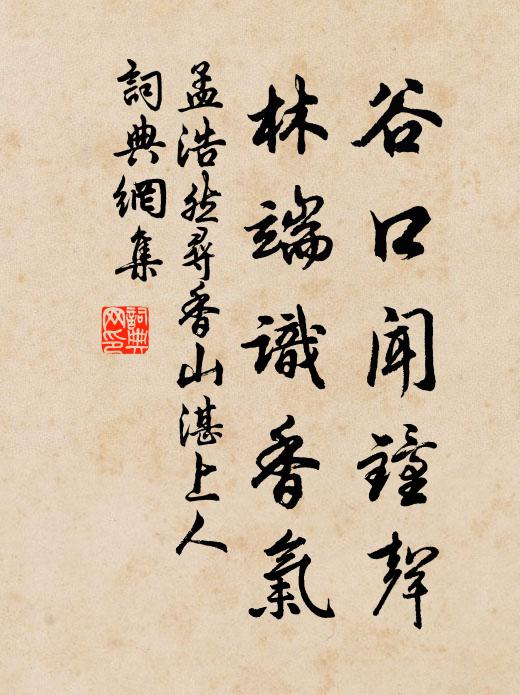 谷口聞鐘聲
林端識香氣
孟浩然尋香山湛上人
詞典網集
詞典網印